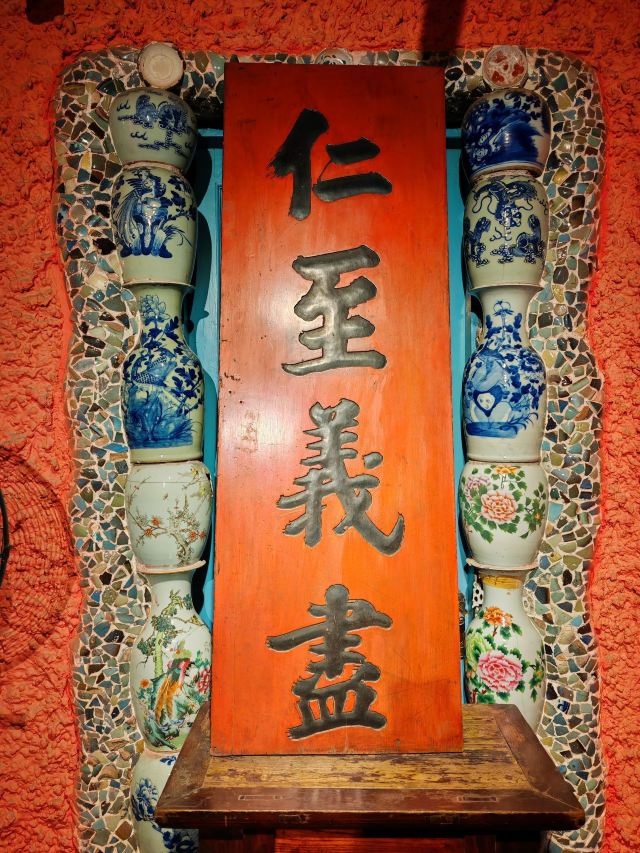 仁至義盡